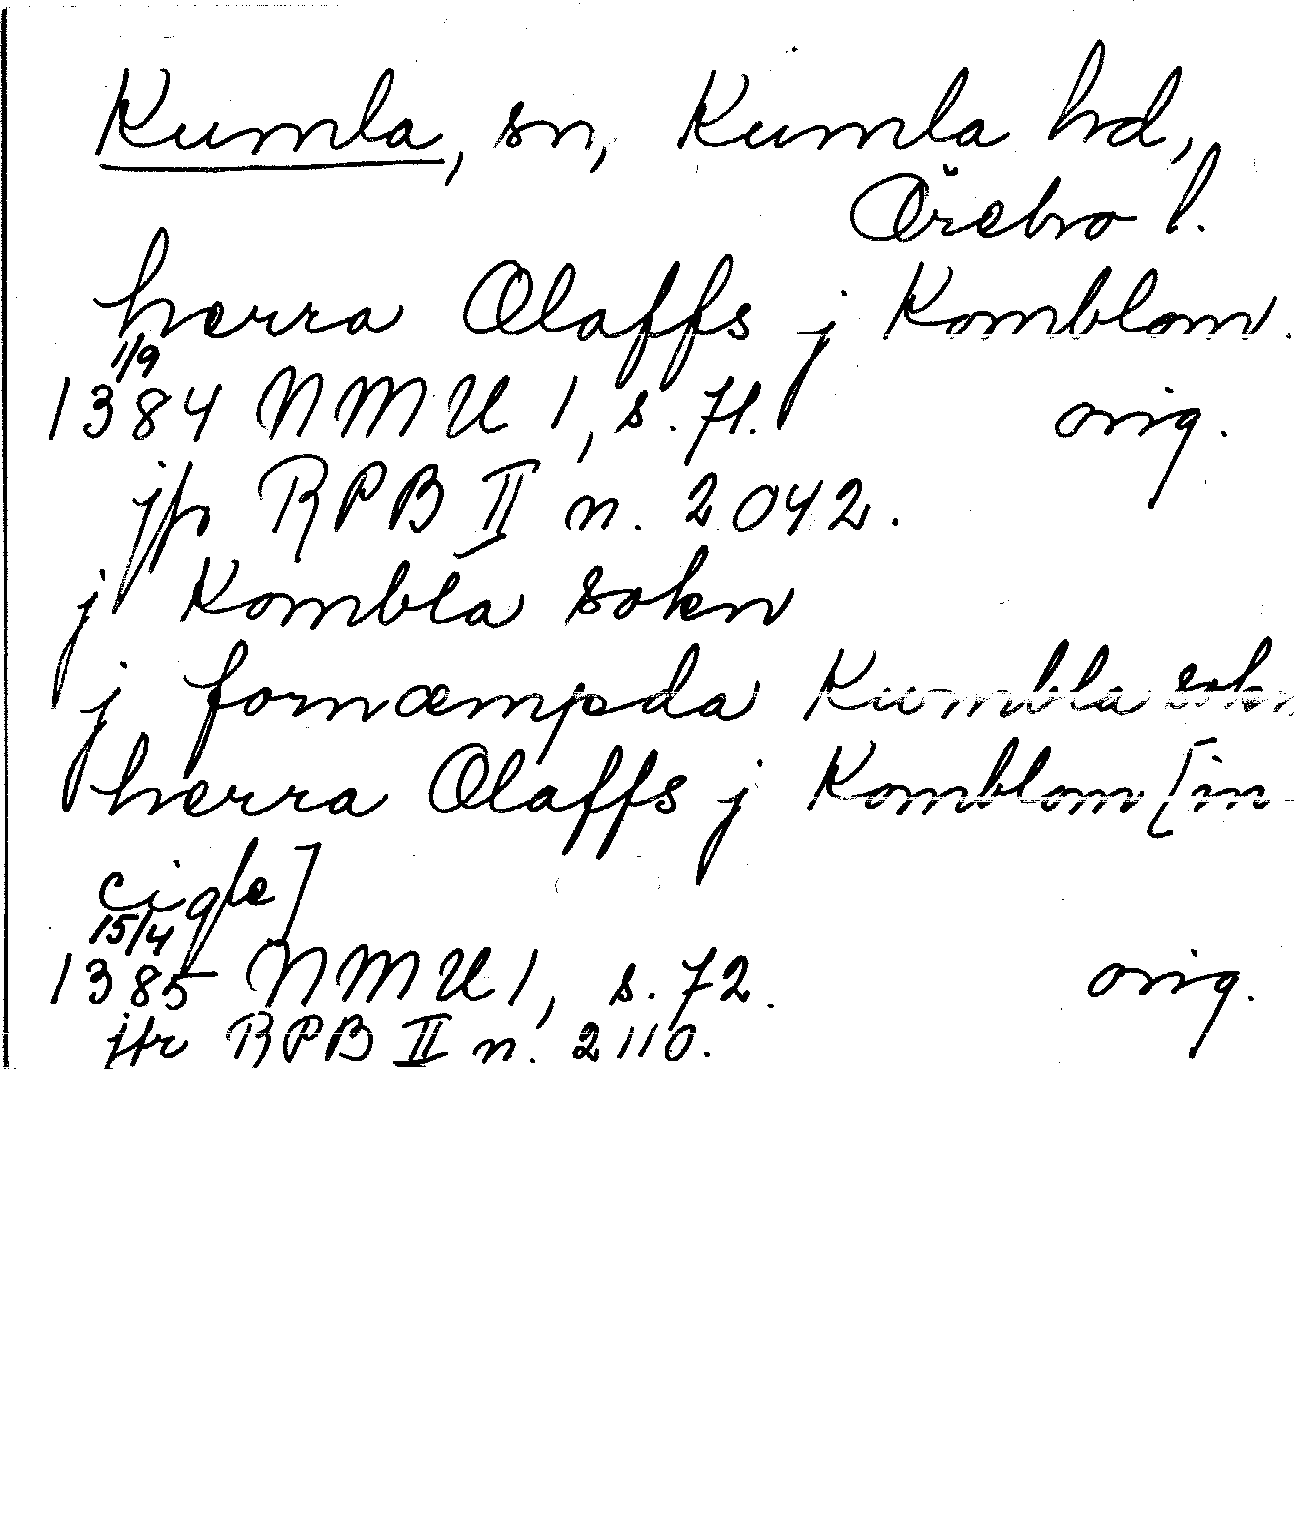 Kumla, sn, Kumla hd,
Örebro l.
herra Olaffs j Komblom.
1/9
1384 NMU 1, s. 71. orig.
jfr RPB II n. 2042.
j Kombla sokn
j fornæmpda Kumbla sokn
herra Olaffs j Komblom [in
cigle]
15/4
1385 NMU 1, s. 72. orig.
jfr RPB II n. 2110.